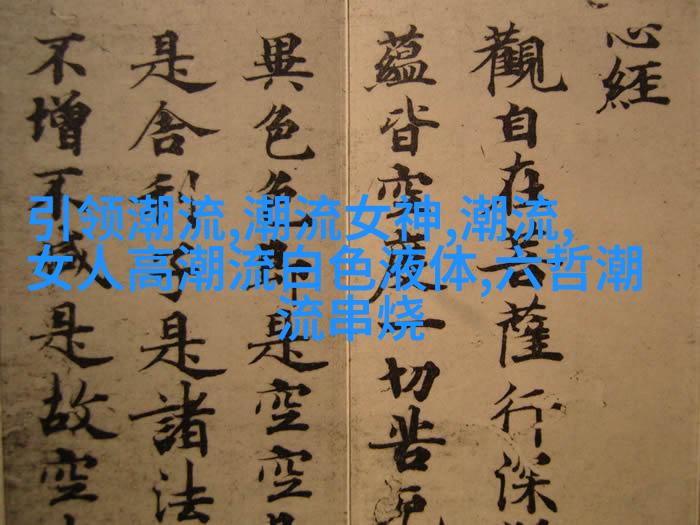 心經
觀自在菩薩行深
蘊皆空度一切苦厄
異色色即是空空
是舍利子是諸法
不增不減是故空
引领潮流,潮流女神,潮流,
女人高潮流白色液体,六哲潮
流串烧